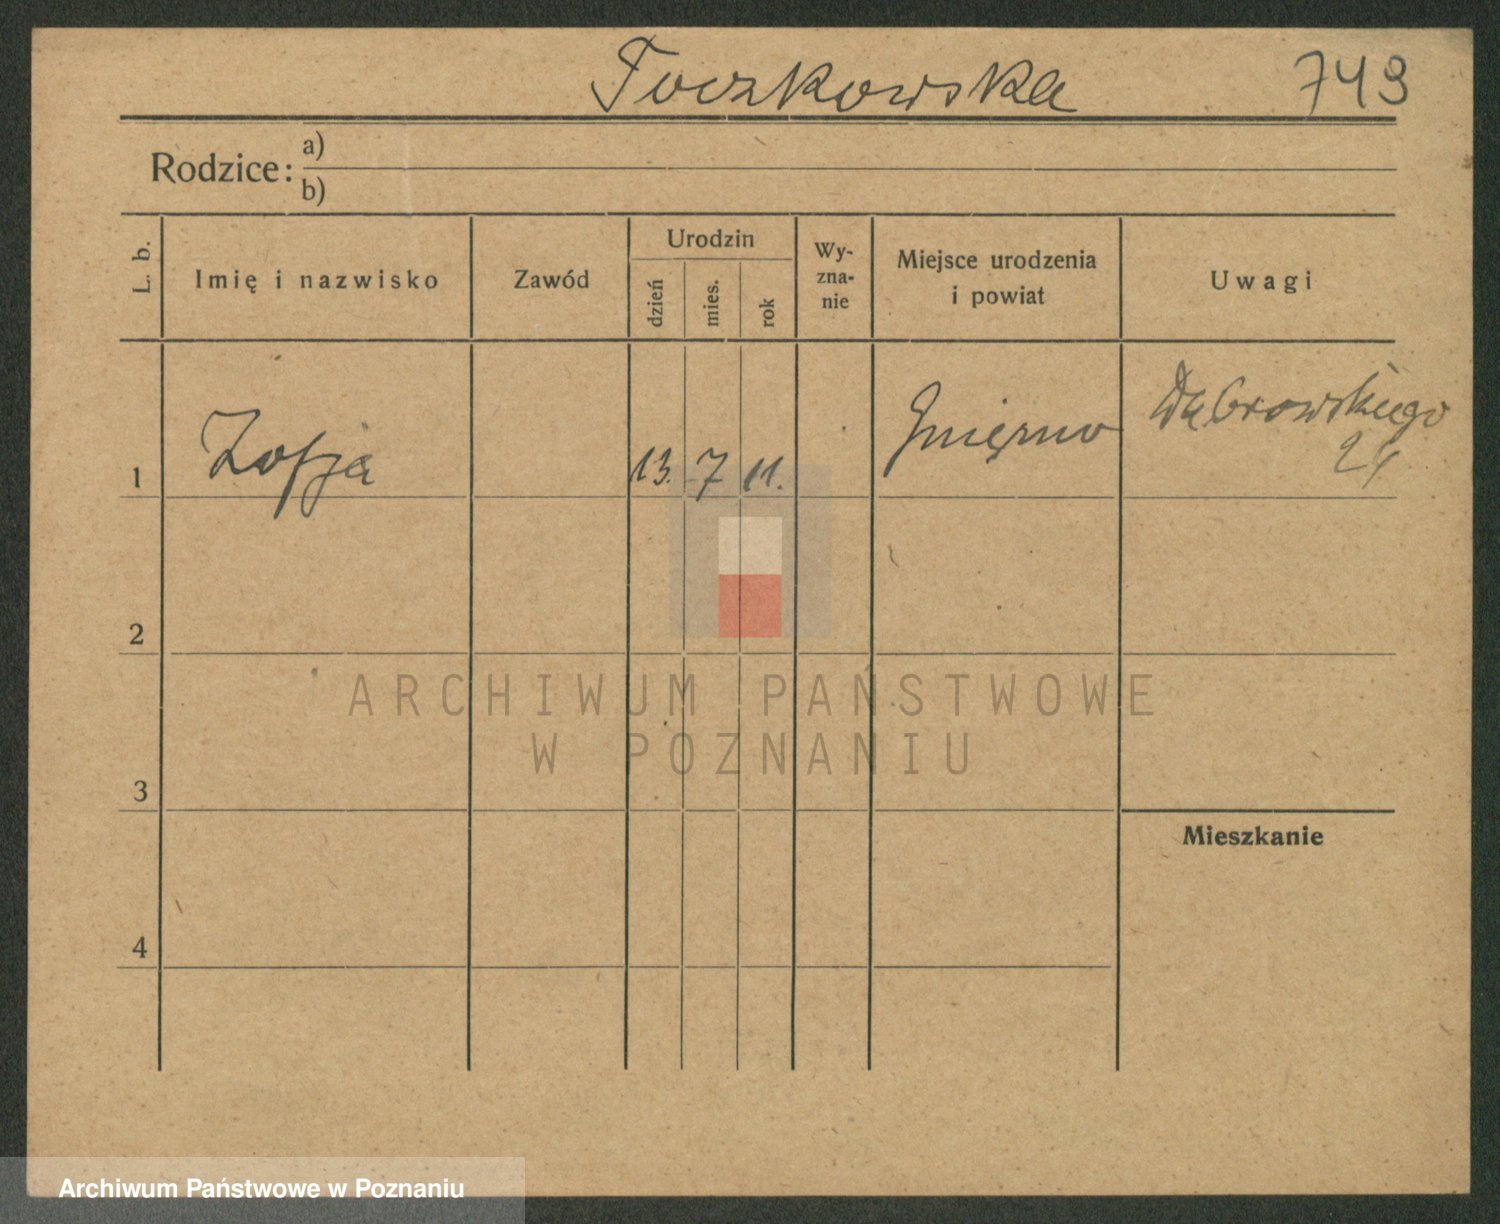 Toczkowska 749
Rodzice:
a)
b)
L. b.
Imię i nazwisko
Zawód
Urodzin
dzień
mies.
rok
Wy-
zna-
nie
Miejsce urodzenia
i powiat
Uwagi
1 Zofja 13. 7 11. Gniezno Dąbrowskiego
2
ARCHIWUM PAŃSTWOWE
W POZNANIU
3
Mieszkanie
4
Archiwum Państwowe w Poznaniu